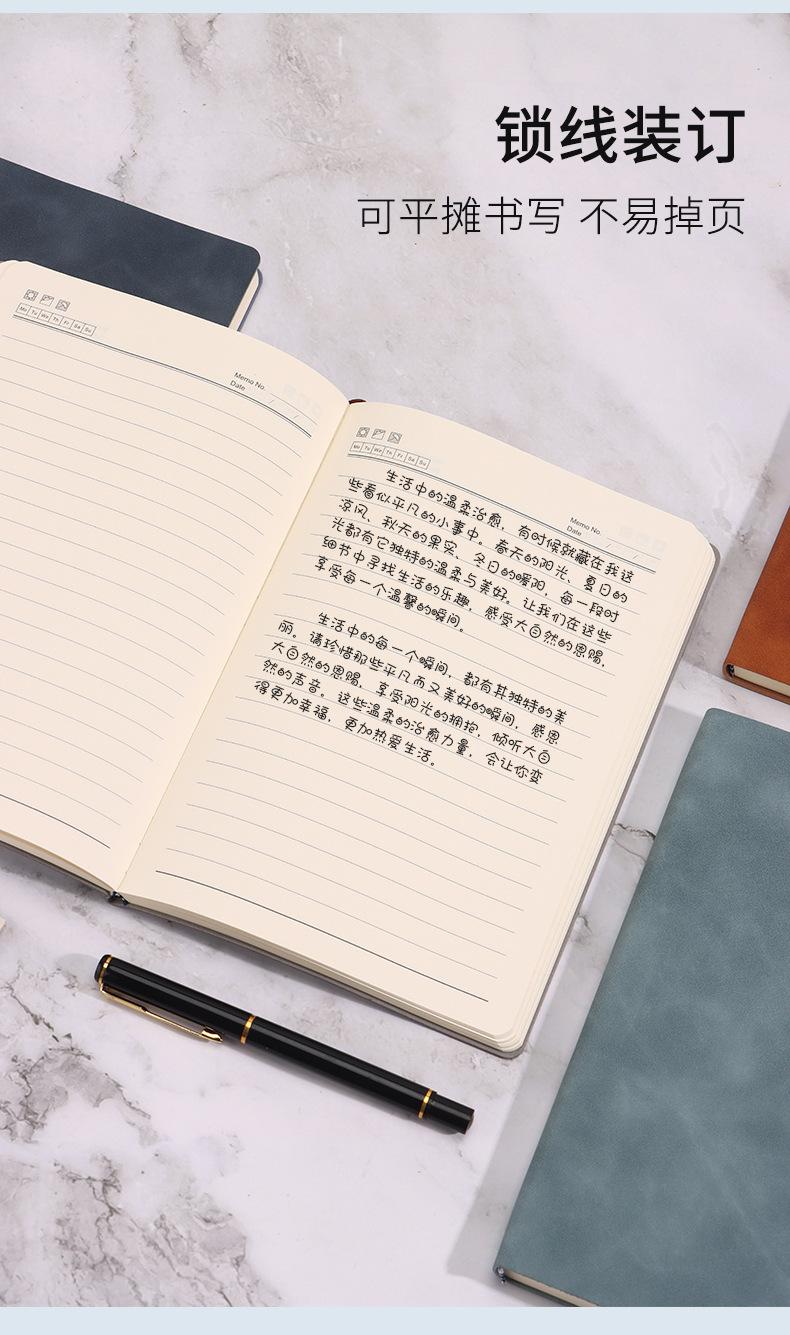 锁线装订
可平摊书写 不易掉页
Mo Tu We Th Fr Sa Su
Memo No.
Date / /
Mo Tu We Th Fr Sa Su
Memo No.
Date / /
生活中的温柔治愈，有时候就藏在我这
些看似平凡的小事中。春天的阳光、夏日的
凉风、秋天的果实、冬日的暖阳，每一段时
光都有它独特的温柔与美好。让我们在这些
细节中寻找生活的乐趣，感受大自然的恩赐，
享受每一个温馨的瞬间。
生活中的每一个瞬间，都有其独特的美
丽。请珍惜那些平凡而又美好的瞬间，感恩
大自然的恩赐，享受阳光的拥抱，倾听大自
然的声音。这些温柔的治愈力量，会让你变
得更加幸福，更加热爱生活。